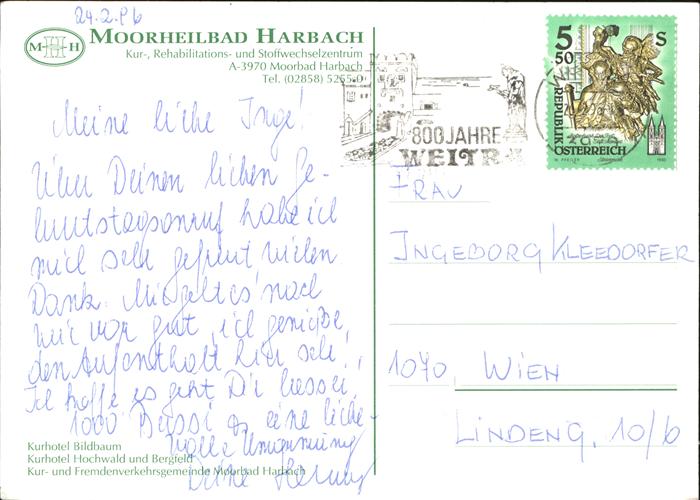 24.2.96
MOORHEILBAD HARBACH
M H H
Kur-, Rehabilitations- und Stoffwechselzentrum
A-3970 Moorbad Harbach
Tel. (02858) 5255-0
Meine liebe Inge!
Über Deinen lieben Ge-
burtstagsanruf habe ich
mich sehr gefreut, vielen
Dank. Mir geht es nach
wie vor gut, ich genieße
den Aufenthalt hier sehr,
Ich hoffe es geht Dir besser,
1000 Bussi & eine liebe-
volle Umarmung
Deine
Kurhotel Bildbaum
Kurhotel Hochwald und Bergfeld
Kur- und Fremdenverkehrsgemeinde Moorbad Harbach
800 JAHRE
WEITRA
5 50 S
REPUBLIK
ÖSTERREICH
FRAU
INGEBORG KLEEDORFER
1040, WIEN
LINDENG. 10/6